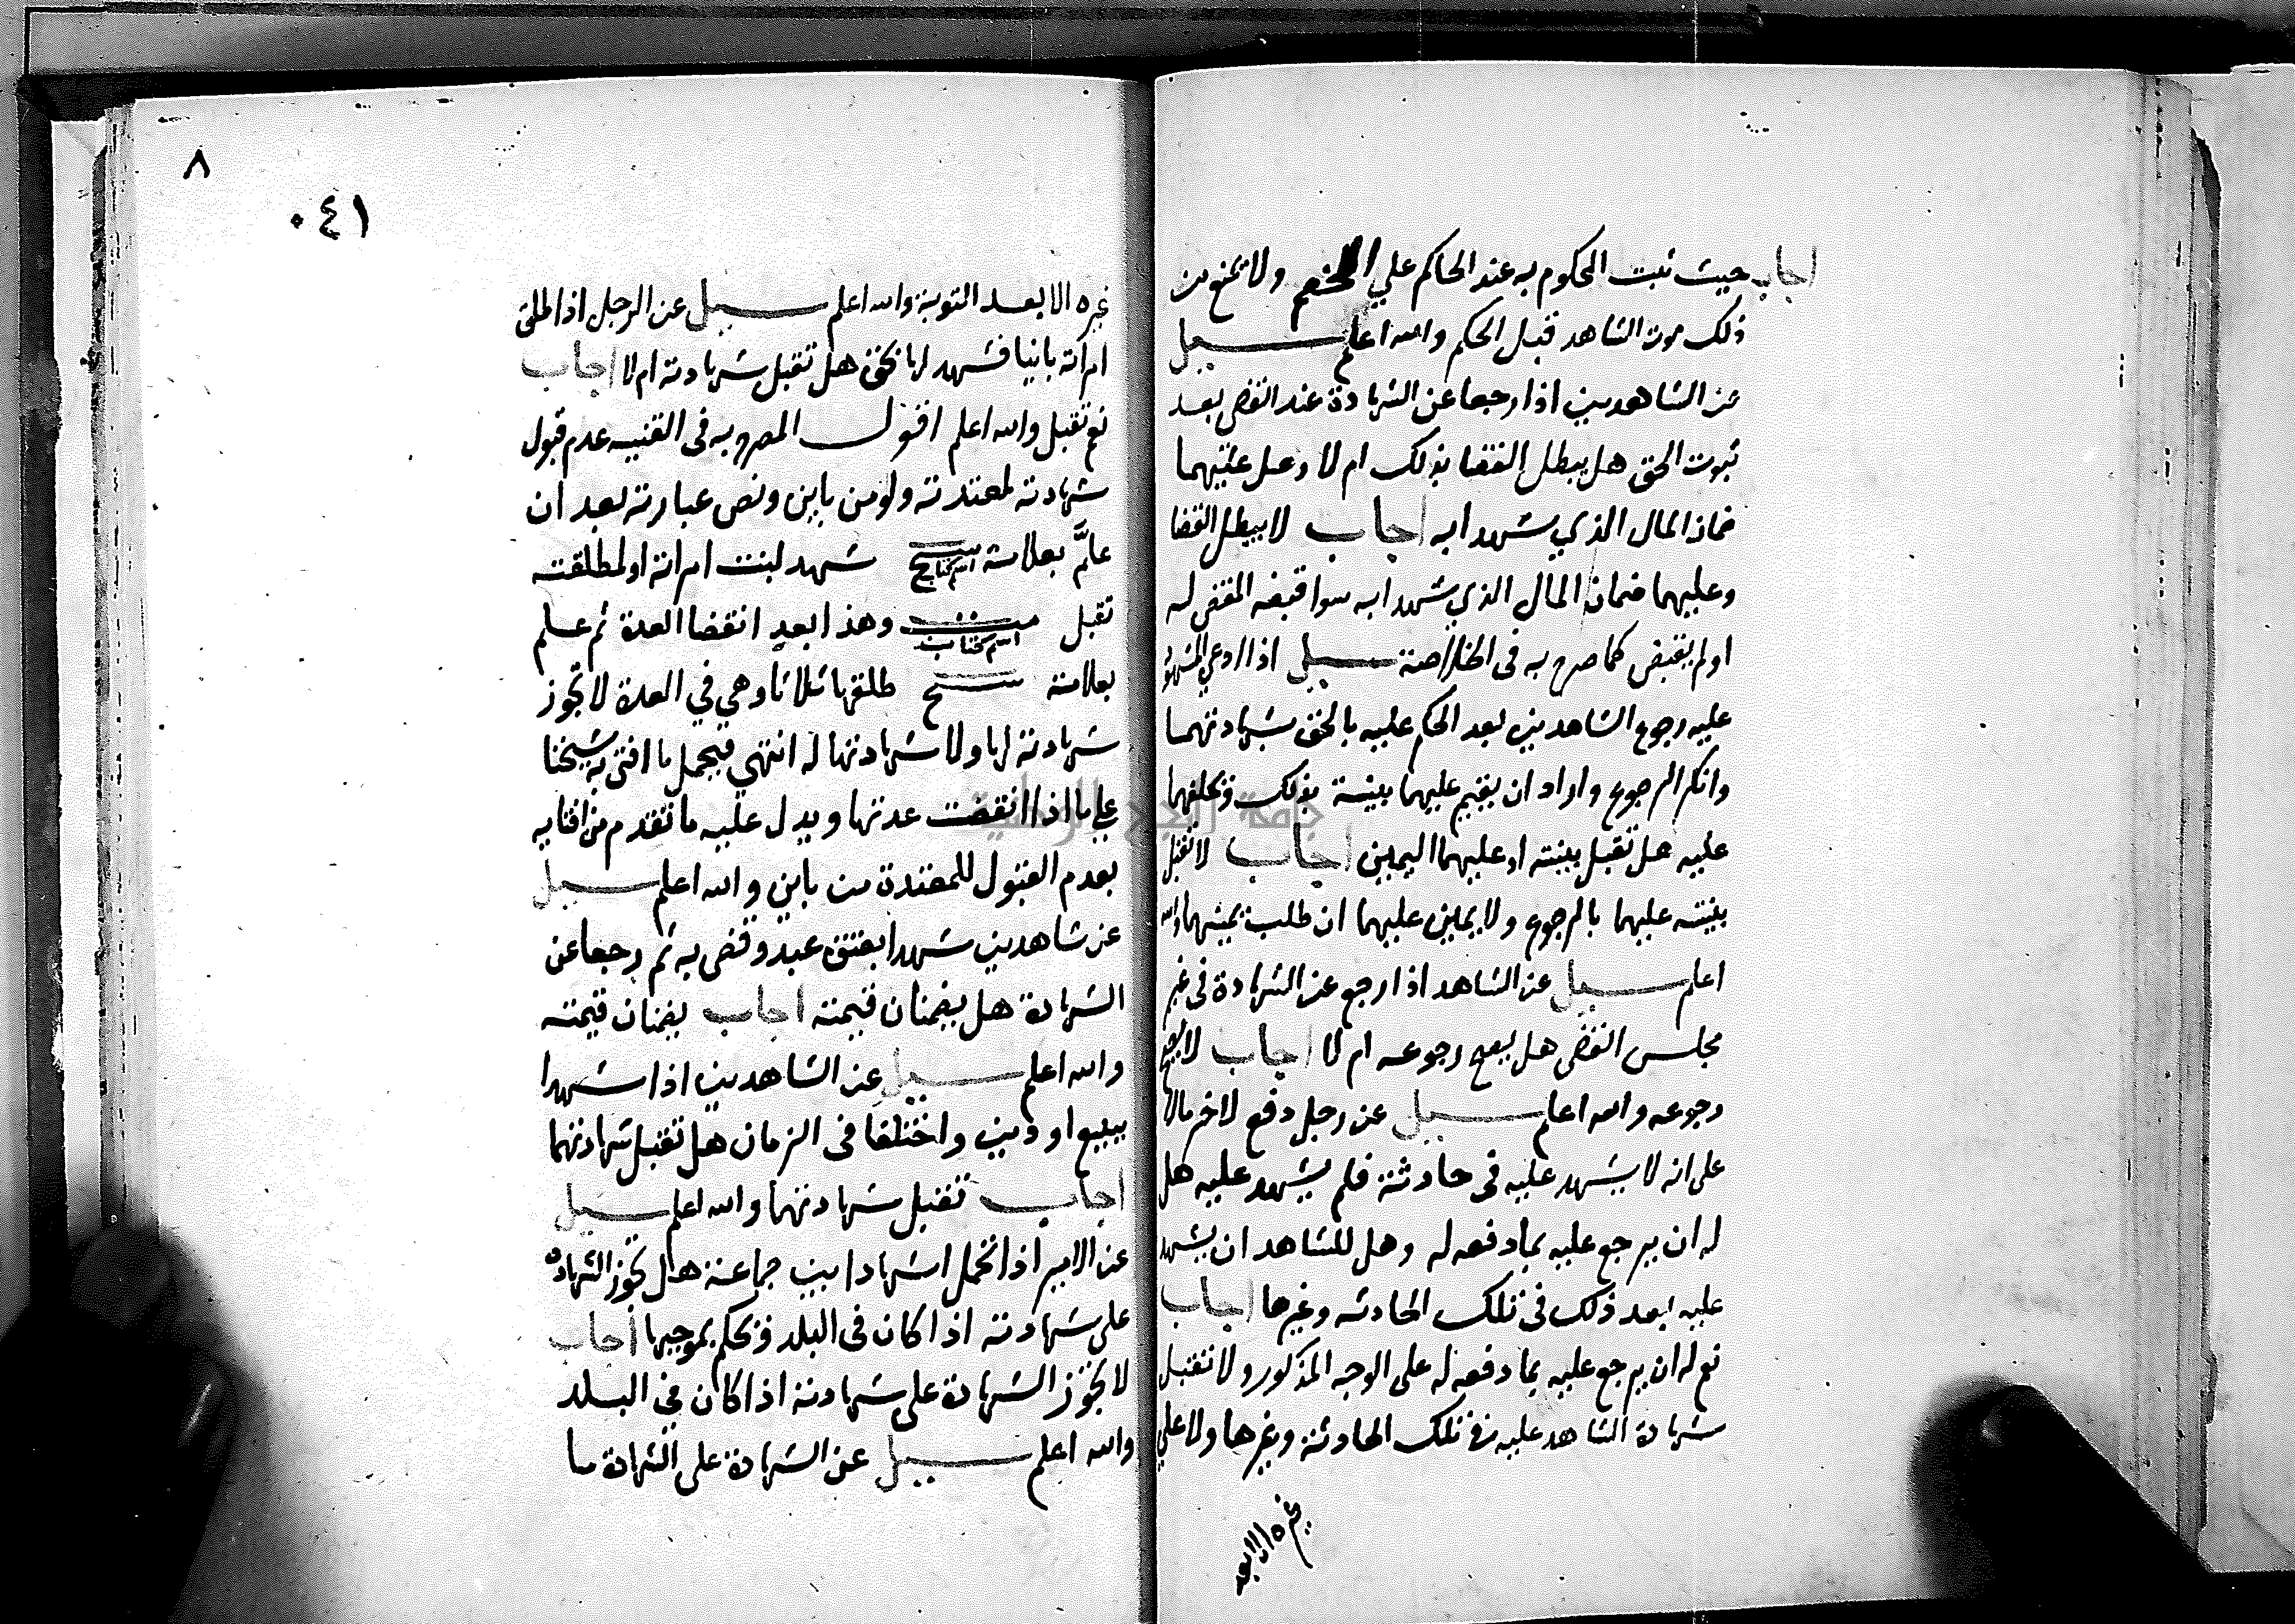 اجاب حيث ثبت المحكوم به عند الحاكم علي الخصم ولا يمنع من
ذلك موت الشاهد قبل الحكم والله اعلم سيل
عن الشاهدين اذا رجعا عن الشهادة عند القضى بعد
ثبوت الحق هل يبطل القضا بذلك ام لا وهل عليهما
ضمان المال الذي شهدا به اجاب لا يبطل القضا
وعليهما ضمان المال الذي شهدا به سوا قبضه المقضى له
اولم يقبض كما صرح به فى الخلاصة سيل اذا ادعي المشهود
عليه رجوع الشاهدين بعد الحكم عليه بالحق بشهادتهما
وانكر الرجوع واراد ان يقيم عليهما بينة بذلك وتحلفهما
عليه هل تقبل بينته او عليهما اليمين اجاب لا تقبل
بينته عليهما بالرجوع ولا يمين عليهما ان طلب يمينهما والله
اعلم سيل عن الشاهد اذا رجع عن الشهادة فى غير
مجلس القضى هل يصح رجوعه ام لا اجاب لا يصح
رجوعه والله اعلم سيل عن رجل دفع لاخر مالا
على انه لا يشهد عليه فى حادثة فلم يشهد عليه هل
له ان يرجع عليه بما دفعه له وهل للشاهد ان يشهد
عليه بعد ذلك فى تلك الحادثه وغيرها اجاب
نعم له ان يرجع عليه بما دفعه له على الوجه المذكور ولا تقبل
شهادة الشاهد عليه فى تلك الحادثة وغيرها ولا علي
غيره الا بعد
٨
٠٤١
غيره الا بعد التوبة والله اعلم سيل عن الرجل اذا طلق
امراته باينا فشهد لها بحق هل تقبل شهادته ام لا اجاب
نعم تقبل والله اعلم اقول المصرح به فى القنيه عدم قبول
شهادته لمعتدته ولو من باين ونص عبارته بعد ان
علَّم بعلامة سيح اسم كتاب شهد لبنت امراته او لمطلقته
تقبل اسم كتاب وهذا بعد انقضا العدة ثم علم
بعلامة سح طلقها ثلاثا وهي في العدة لا تجوز
شهادته لها ولا شهادتها له انتهي فيحمل ما افتى به شيخنا
علي ما اذا انقضت عدتها ويدل عليه ما تقدم من افتايه
بعدم القبول للمعتدة من باين والله اعلم سيل
عن شاهدين شهدا بعتق عبد وقضى به ثم رجعا عن
الشهادة هل يضمنان قيمته اجاب يضمنان قيمته
والله اعلم سيل عن الشاهدين اذا شهدا
ببيع او دين واختلفا فى الزمان هل تقبل شهادتهما
اجاب تقبل شهادتهما والله اعلم سيل
عن الامير اذا تحمل اشهادا بين جماعة هل تجوز الشهادة
على شهادته اذا كان فى البلد وتحكم بموجبها اجاب
لا تجوز الشهادة على شهادته اذا كان في البلد
والله اعلم سيل عن الشهادة على الشهادة ما